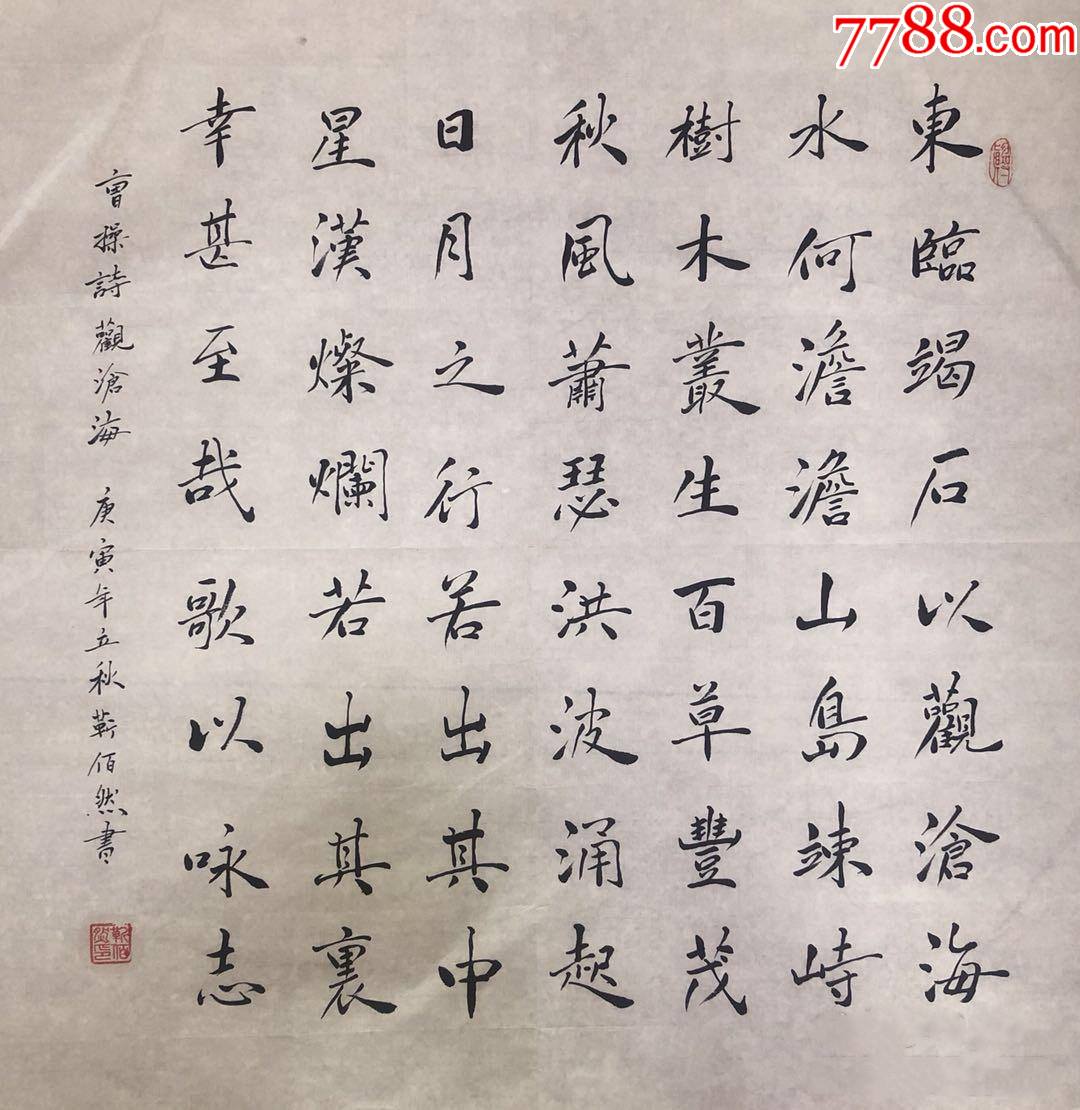 7788.com
東臨竭石以觀滄海
水何澹澹山島竦峙
樹木叢生百草豐茂
秋風蕭瑟洪波涌起
日月之行若出其中
星漢燦爛若出其裏
幸甚至哉歌以咏志
曹操詩觀滄海 庚寅年立秋靳佰然書